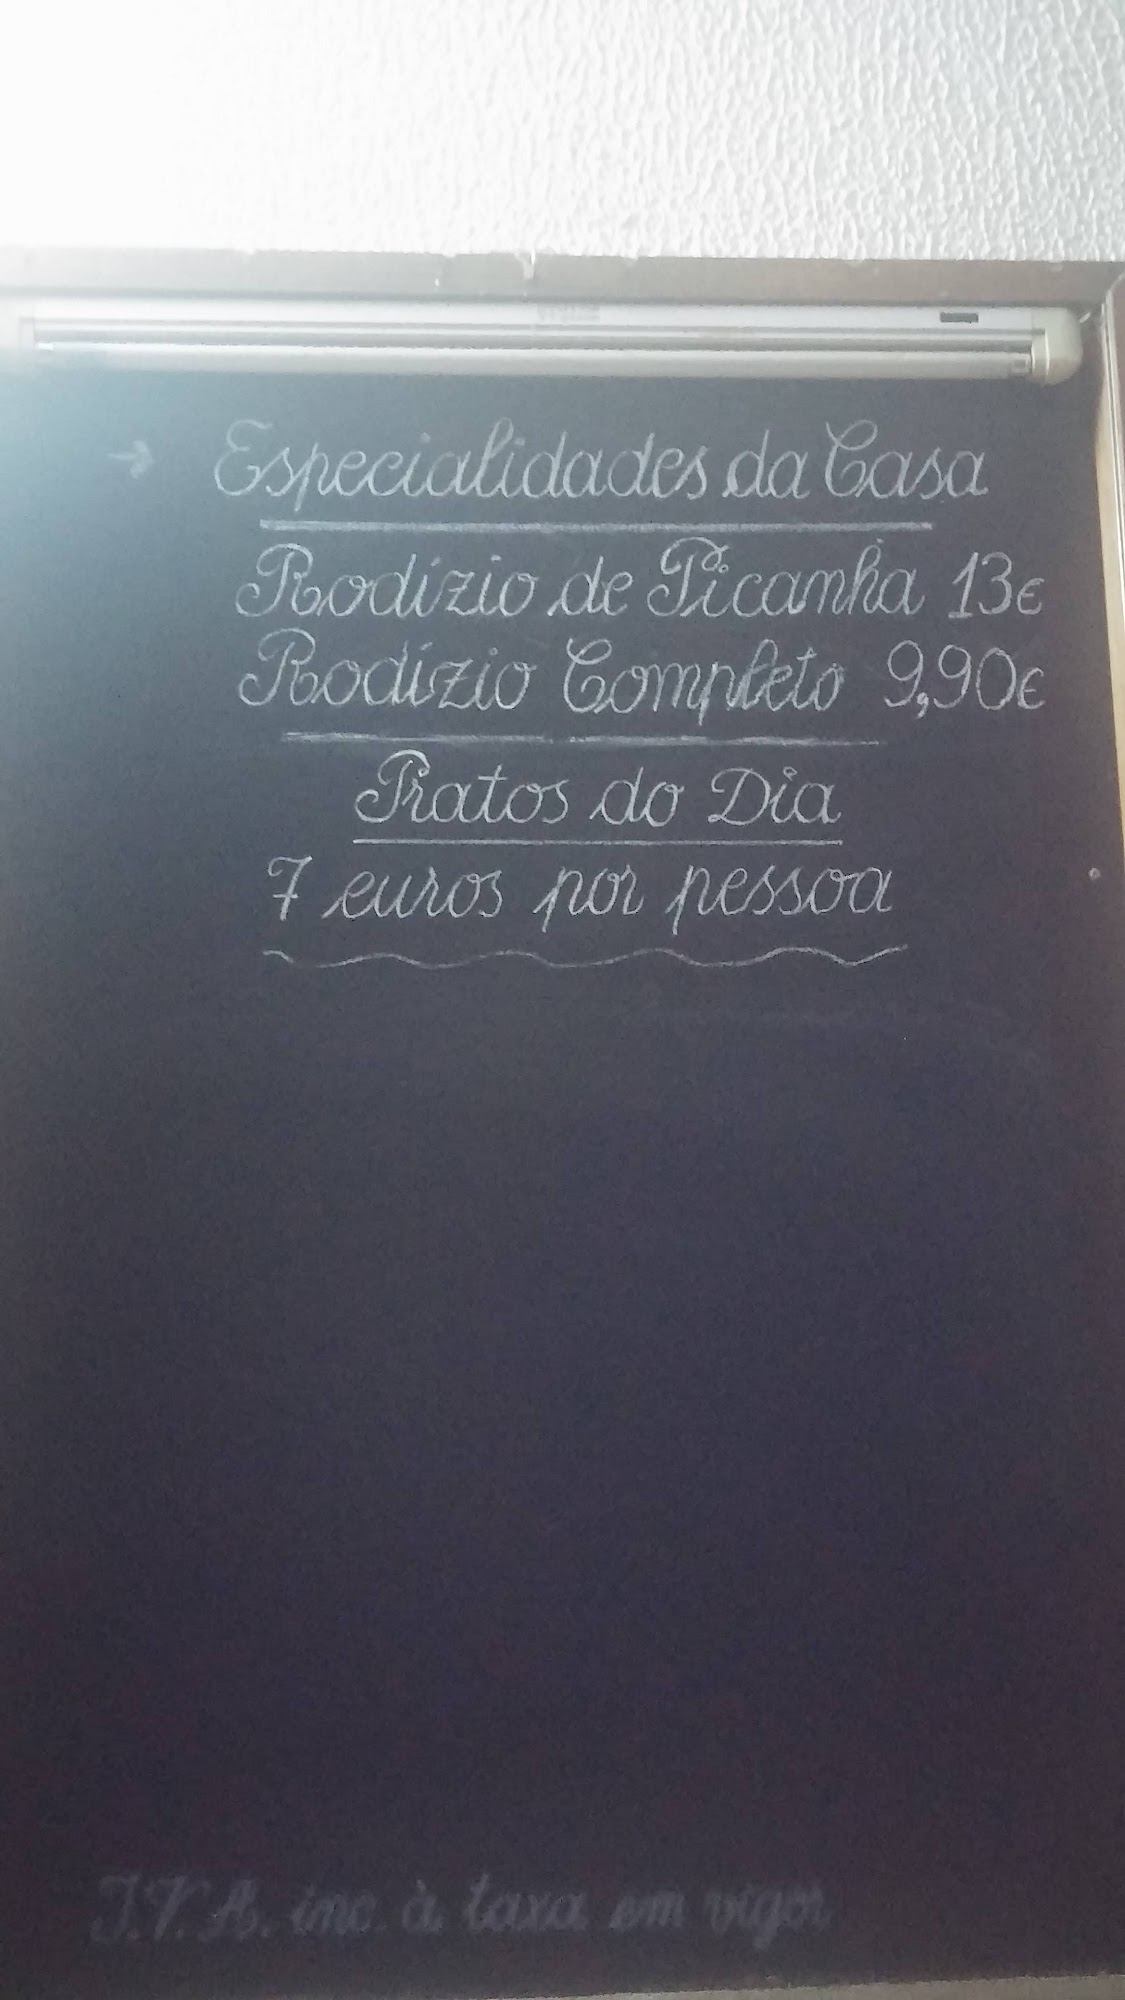 → Especialidades da Casa
Rodízio de Picanha 13€
Rodízio Completo 9,90€
Pratos do Dia
7 euros por pessoa
I.V.A. inc. à taxa em vigor